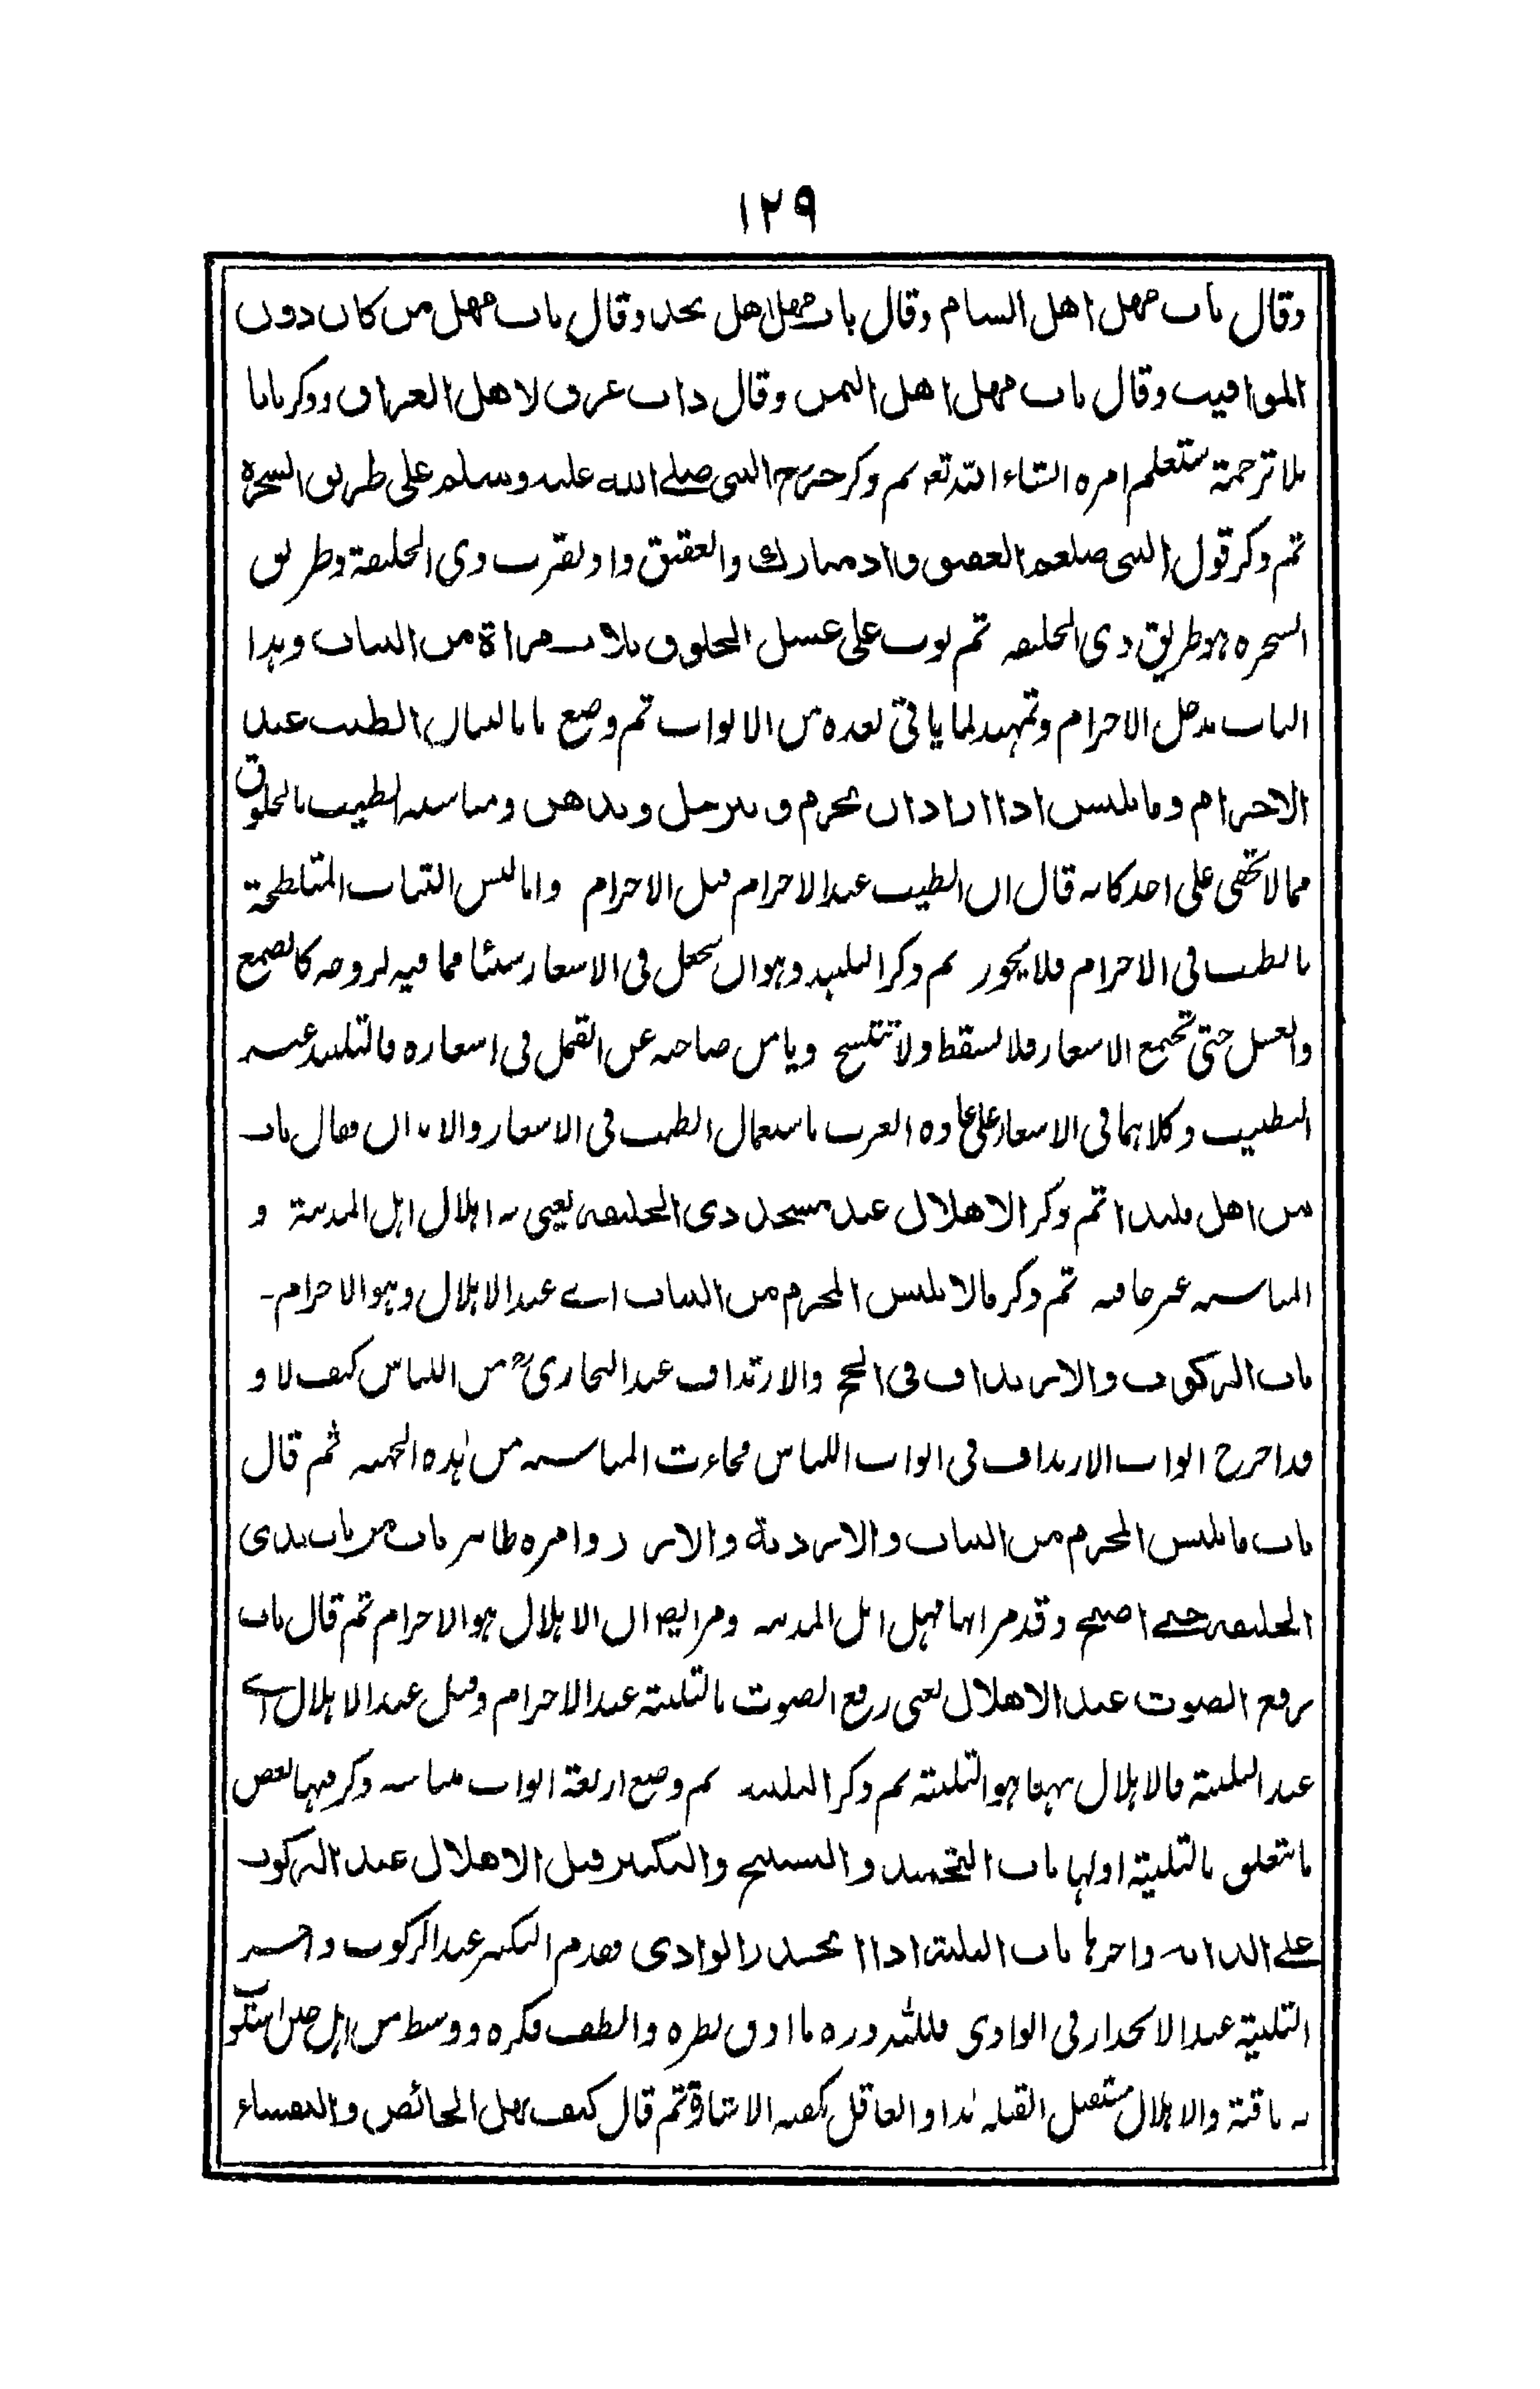 ١٢٩
وقال باب مهل اهل الشام وقال باب مهل اهل نجد وقال باب مهل من كان دون
المواقيت وقال باب مهل اهل اليمن وقال ذات عرق لاهل العراق وذكر بابا
بلا ترجمة ستعلم امره انشاء الله تعم ثم ذكر خروج النبى صلے الله عليه وسلم على طريق الشجرة
ثم ذكر قول النبى صلعم العقيق واد مبارك والعقيق واد بقرب ذى الحليفة وطريق
الشجره هو طريق ذى الحليفه ثم بوب على غسل الخلوق ثلاث مراة من الثياب وهذا
الباب مدخل الاحرام وتمهيد لما ياتى بعده من الابواب ثم وضع بابا لبيان الطيب عند
الاحرام وما يلبس اذا اراد ان يحرم و يترجل ويدهن ومناسبه الطيب بالخلوق
مما لا تخفى على احد كانه قال ان الطيب عند الاحرام قبل الاحرام واما لبس الثياب المتلطخة
بالطيب فى الاحرام فلا يجوز ثم ذكر التلبيد وهو ان يجعل فى الاشعار شيئا مما فيه لزوجه كالصمغ
والعسل حتى تجتمع الاشعار فلا تسقط ولا تتسخ ويامن صاحبه عن القمل فى اشعاره فالتلبيد غير
التطييب وكلاهما فى الاشعار على عادة العرب باستعمال الطيب فى الاشعار والابدان فقال باب
من اهل ملبدا ثم ذكر الاهلال عند مسجد ذى الحليفه يعنى به اهلال اهل المدينة و
المناسبه غير خافيه ثم ذكر مالا يلبس المحرم من الثياب اے عند الاهلال وهو الاحرام۔
باب الركوب والارتداف فى الحج والارتداف عند البخارىؒ من اللباس كيف لا و
قد اخرج ابواب الارتداف فى ابواب اللباس فجاءت المناسبه من هٰذه الجهه ثم قال
باب ما يلبس المحرم من الثياب والاردية والازر وامره ظاهر باب من بات بذى
الحليفه حتے اصبح وقد مر انها مهل اهل المدينه ومر ايضا ان الاهلال هو الاحرام ثم قال باب
رفع الصوت عند الاهلال يعنى رفع الصوت بالتلبية عند الاحرام وقيل عند الاهلال اے
عند التلبية فالاهلال ههنا هو التلبية ثم ذكر التلبيه ثم وضع اربعة ابواب مناسبه وذكر فيها بعض
ما يتعلق بالتلبية اولها باب التحميد والتسبيح والتكبير قبل الاهلال عند الركوب
علے الدابه واخرها باب التلبية اذا انحدر الوادى فقدم التكبير عند الركوب واخر
التلبية عند الانحدار فى الوادى فللّه دره ما ادق نظره والطف فكره ووسط من اهل حين استوت
به ناقتة والاهلال مستقبل القبله هٰذا والعاقل يكفيه الاشارة ثم قال كيف تهل الحائض والنفساء